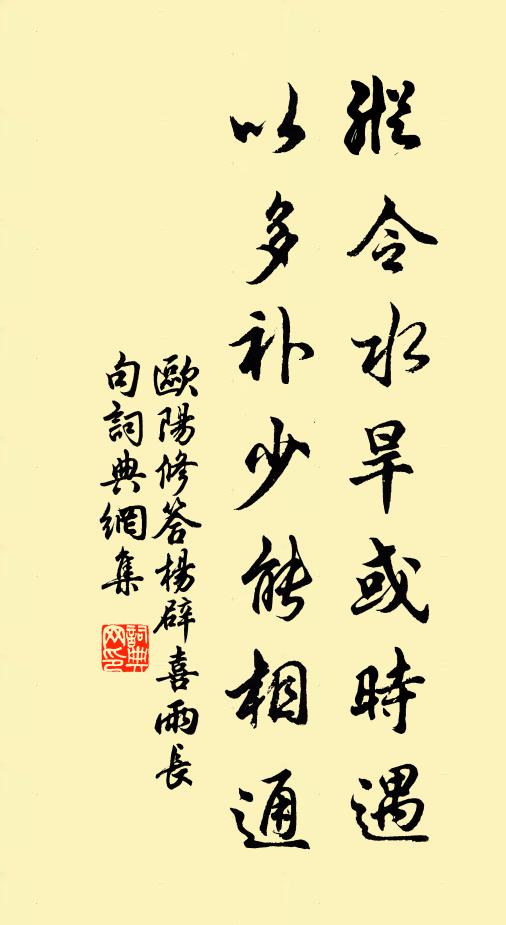 縱令水旱或時遇
以多补少能相通
歐陽修答楊辟喜雨長
句詞典網集
詞典网印